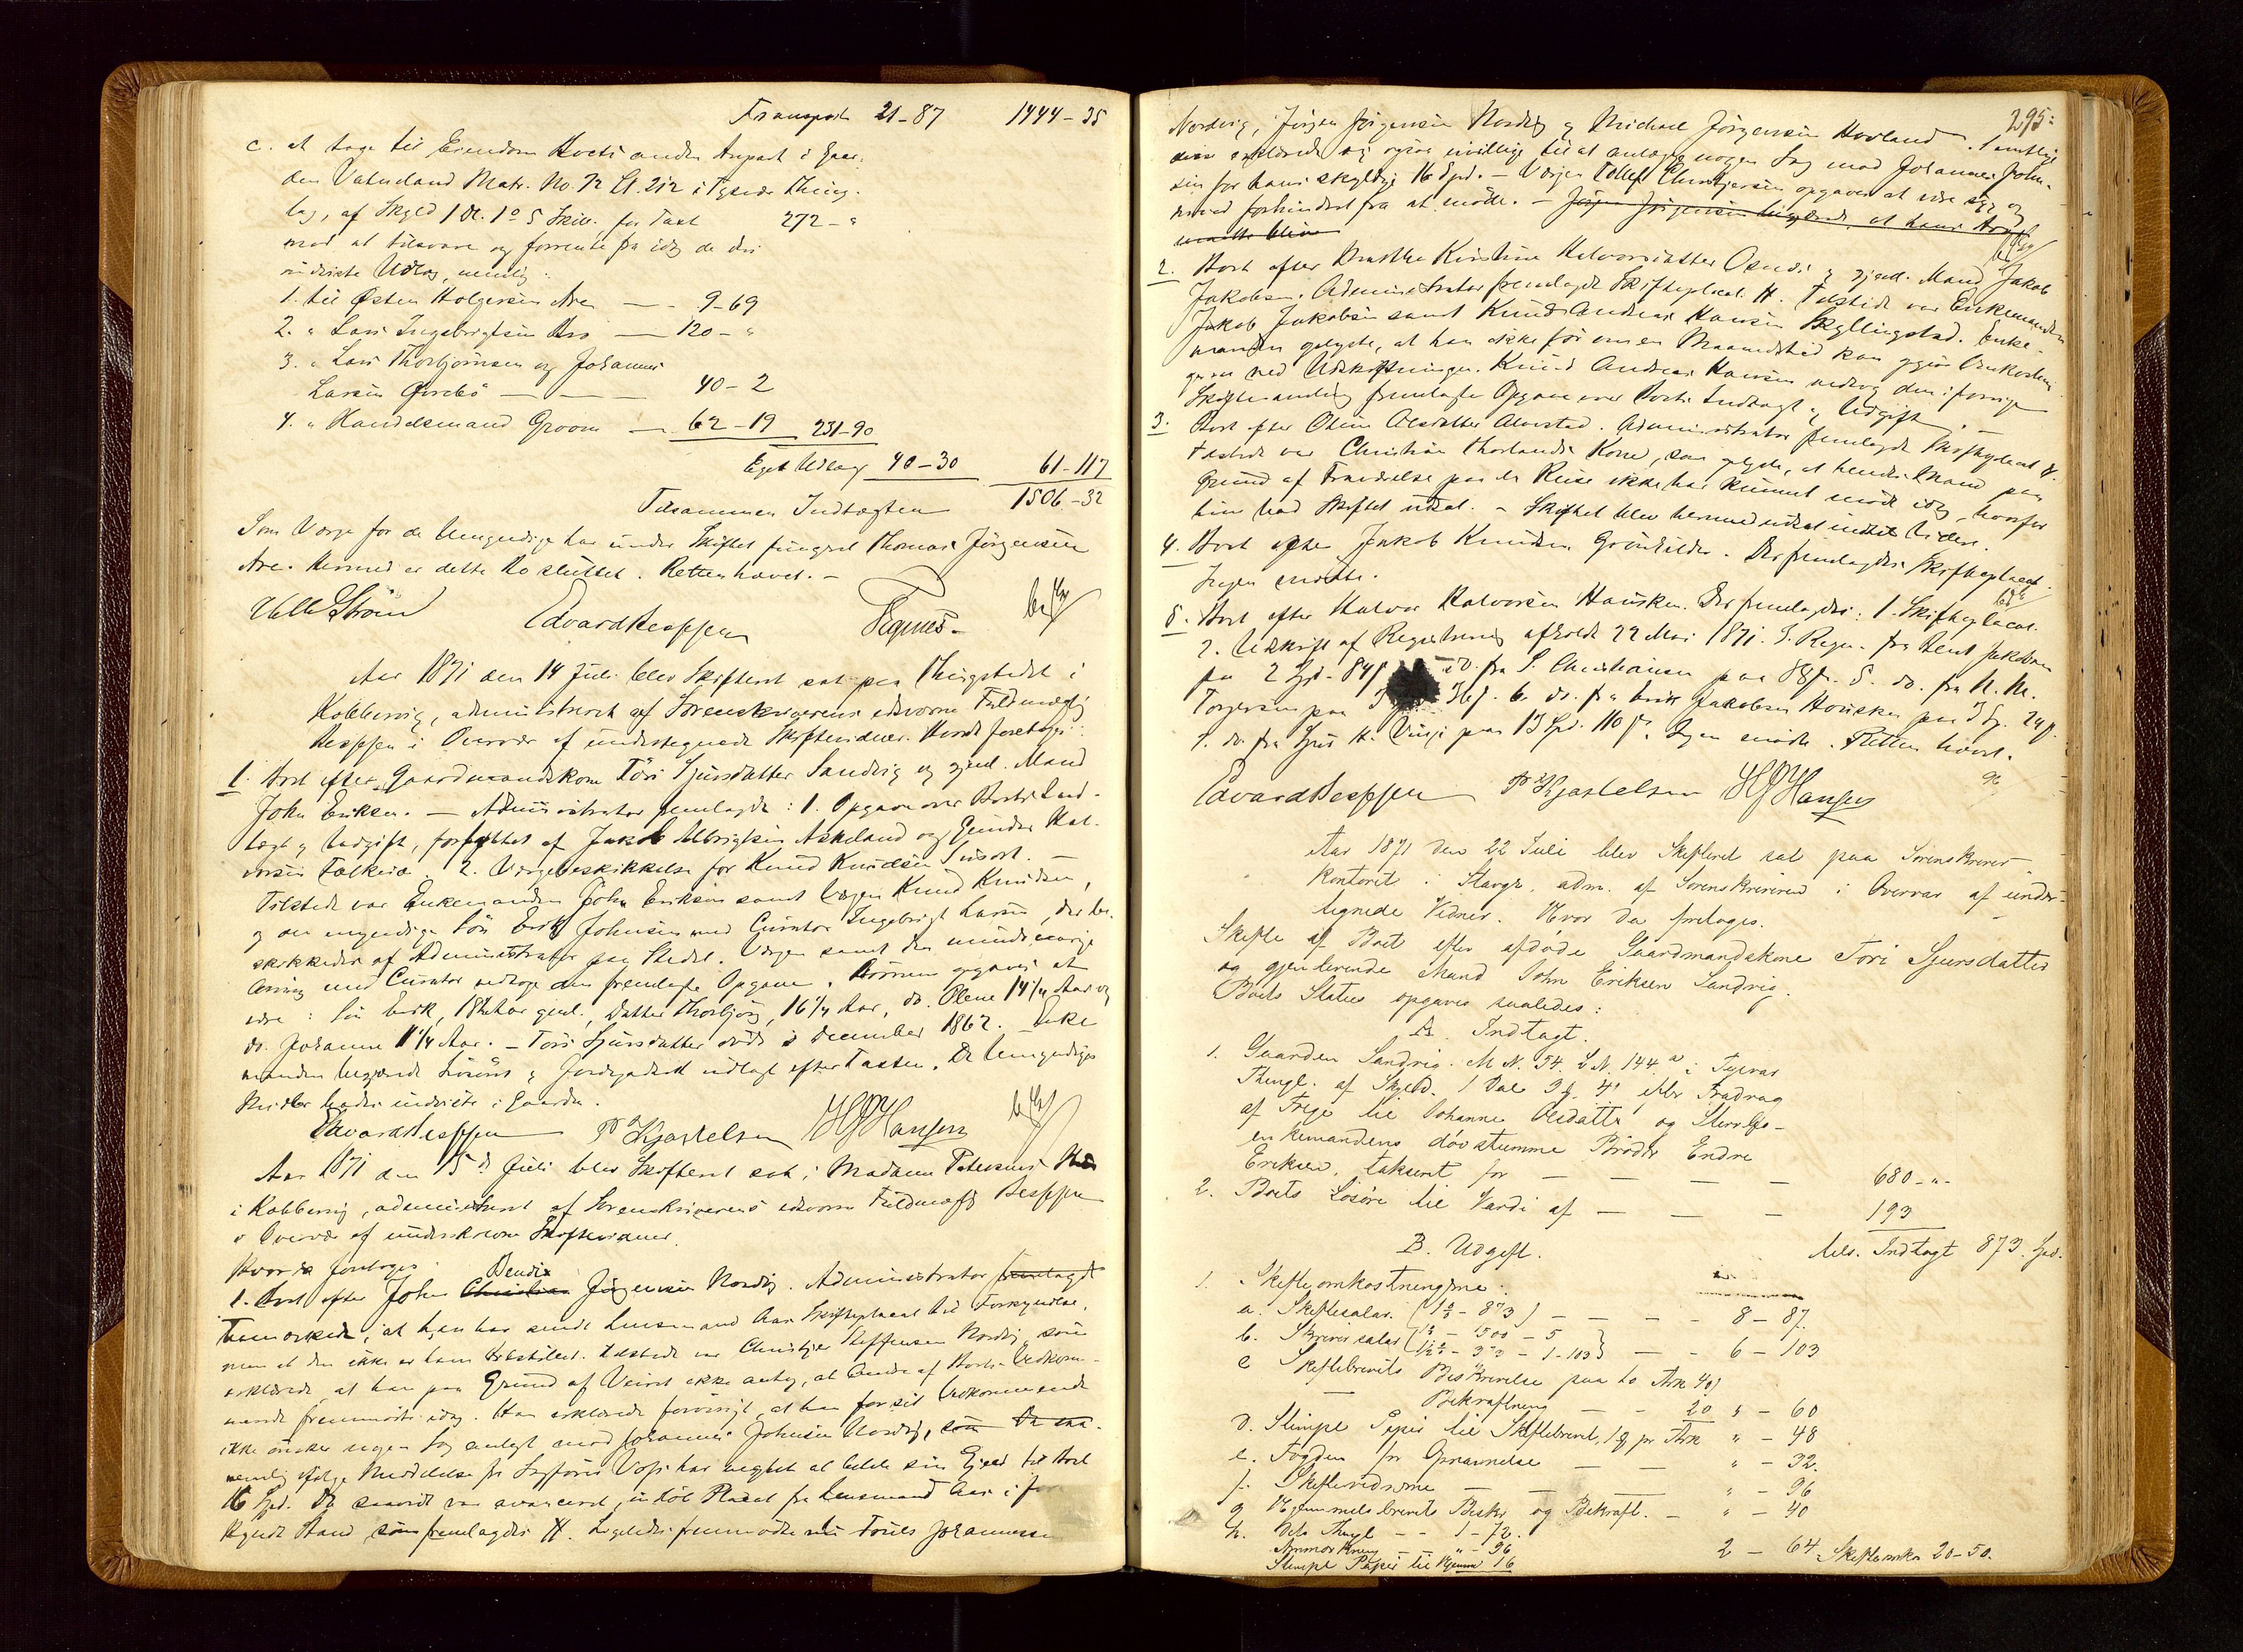 Transport 21-87 1444-35
c. at tage til Eiendom Boets anden Anpart i Gaar-
den Vatneland Matr. No. 72 Lb. 212 i Tysvær Thing-
lag, af Skyld 1 Dl. 1 o 5 Skill. for Taxt 272 - "
mod at tilsvare og forrente fra idag de deri
indviste Udlæg, nemlig:
1. til Østen Holgersen Are — - 9-69
2. " Lars Ingebrigtsen Aro — 120 - "
3. " Lars Thorbjørnsen og Johannes
Larsen — — — 40-2
4. " Handelsmand Groom — 62-19 231-90
Eget Udlæg 40-30 61-117
Tilsammen Indtægten 1506-32
Som Værge for de Umyndige har under Skiftet fungeret Thomas Jörgensen
Are. Hermed er dette Bo sluttet. Retten hævet. -
Edvard Jespersen
Aar 1871 den 14 Juli blev Skifteret sat paa Thingstedet i
Kobbervig, administreret af Sorenskriverens edsvorne Fuldmægtig
i Overvær af undertegnede Skiftevidner. Hvorda foretoges:
1. Boet efter Gaardmandskone Töri Sjursdatter Sandvig og gjenl. Mand
John Eriksen. — Administrator fremlagde: 1. Opgave over Boets Ind-
tægt og Udgift, forfattet af Jakob Albrigtsen Askeland og Gunder Hal-
vorsen Falkeid. 2. Værgebeskikkelse for Knud Knudsen
Tilstede var Enkemanden John Eriksen samt Værgen Knud Knudsen,
og den umyndige Sön Erik Johnsen med Curator Ingebrigt Larsen, der be-
skikkedes af Administrator paa Stedet. Værgen samt den mindreaarige
Arving med Curator vedtoge den fremlagte Opgave. Börnene opgaves at
være: Sön Erik, 18 Aar gml., Datter Thorbjörg, 16 1/4 Aar, do. Olene 14 1/4 Aar og
do. Johanne 11 1/4 Aar. - Töri Sjursdatter döde i December 1862. - Enke-
manden begjærede Lösöre og Jordegodset udlagt efter Taxten. De Umyndiges
Midler bades indviste i Gaarden.
P Kjastelsen HJHansen
Aar 1871 den 15de Juli blev Skifteret sat i Madame Petersens Hus
i Kobbervig, administreret af Sorenskriverens edsvorne Fuldmægtig
i Overvær af underskrevne Skiftevidner.
Hvorda foretoges:
1. Boet efter John Christian Bendix Jörgensen Nordvig. Administrator fremlagde
bemærkede, at han har sendt Lensmand Aar Skifteplacat til Forkyndelse,
men at den ikke er ham tilstillet. Tilstede var Christjer Steffensen Nordvig, som
erklærede, at han paa Grund af Veiret ikke antog, at Andre af Boets Vedkom-
mende fremmödte idag. Han erklærede forövrigt, at han for sit Vedkommende
ikke önsker nogen Sag anlagt mod Johannes Johnsen Nordvig, som
nemlig ifölge Meddelelse fra Sagförer Voss har negtet at betale sin Gjæld til Boet
16 Spd. Da saavidt var avanceret, indlöb Placat fra Lensmand Aar i for-
kyndt Stand, som fremlagdes H. Ligeledes fremmödte nu Tönnes Johannessen
295:
Nordvig, Jörgen Jörgensen Nordvig og Michael Jörgensen Hovland. Samtlige
disse erklærede sig ogsaa uvillige til at anlægge nogen Sag mod Johannes John-
sen for hans skyldige 16 Spd. - Værgen Tollef Christjersen opgaves at være syg og
derved forhindret fra at möde. - Jörgen Jörgensen begjærede, at hans Arv
maatte blive
2. Boet efter Marthe Kristine Halvorsdatter Osnes og gjenl. Mand Jakob
Jakobsen. Administrator fremlagde Skifteplacat H. Tilstede var Enkemanden
Jakob Jakobsen samt Knud Andreas Hansen Skyllingstad. Enke-
manden oplyste, at han ikke för om en Maanedstid kan opgive Omkostnin-
gerne ved Udskiftningen. Knud Andreas Hansen vedtog den i forrige
Skiftesamling fremlagte Opgave over Boets Indtægt og Udgift. -
3. Boet efter Oline Olsdatter Alvestad. Administrator fremlagde Skifteplacat H.
Tilstede var Christian Thorlands Kone, som oplyste, at hendes Mand paa
Grund af Fraværelse paa en Reise ikke har kunnet möde idag, hvorfor
hun bad Skiftet udsat. - Skiftet blev hermed udsat indtil Videre.
4. Boet efter Jakob Knudsen Grönhilder. Der fremlagdes Skifteplacat.
Ingen mödte.
5. Boet efter Halvor Halvorsen Hausken. Der fremlagdes: 1. Skifteplacat.
2. Udskrift af Registrering afholdt 22 Mai 1871. 3. Regn. fra Bent Jakobsen
paa 2 Spd. 84 s. do. fra S. Christiansen paa 88 s. 5. do. fra N. N.
Torgersen paa 36 s. 6. do. fra Jakobsen Hausken paa 3 Sp. 24 s.
7. do. fra Sjur H. Vinje paa 13 Spd. 110 s. Ingen mödte. Retten hævet.
P Kjastelsen HJHansen
Aar 1871 den 22 Juli blev Skifteret sat paa Sorenskriver-
kontoret i Stavgr. adm. af Sorenskriveren i Overvær af under-
tegnede Vidner. Hvor da foretoges.
Skifte af Boet efter afdöde Gaardmandskone Töri Sjursdatter
og gjenlevende Mand John Eriksen Sandvig.
Boets Status opgaves saaledes:
A. Indtægt.
1. Gaarden Sandvig. M N. 54. L N. 144 a i Tysvær
Thingl. af Skyld. 1 Dal. 3 ß 4 s efter Fradrag
af Frige til Johanne Olsdatter og Stervbo-
enkemandens døvstumme Broder Endre
Eriksen, takseret for — — — — 680 - " -
2. Boets Løsøre til Værdi af — — — 193
tils. Indtægt 873. Spd.
B. Udgift.
1. Skifteomkostningerne:
a. Skiftesalær. (1% - 873) — — - - 8 - 87.
b. Skriversalær (1% - 500 - 5 / 1/2% - 373 - 1-103) — - 6 - 103
c. Skiftebrevets Beskrivelse paa to Ark 40
— Bekræftning — - 20 " - 60
d. Stemplt Papir til Skiftebrevet, 1 ß pr Ark " - 48
e. Fogden for Opnævnelse — — " - 32.
f. Skiftevidnerne — — — " - 96
g. Hjemmelsbrevets Beskr. og Bekræft. - " - 40
h. Dets Thingl. - - 1 - 72.
Anmærkning — - " - 36
Stemplt Papir til Hjemm 16 2 - 64 Skifteomkos 20-50.